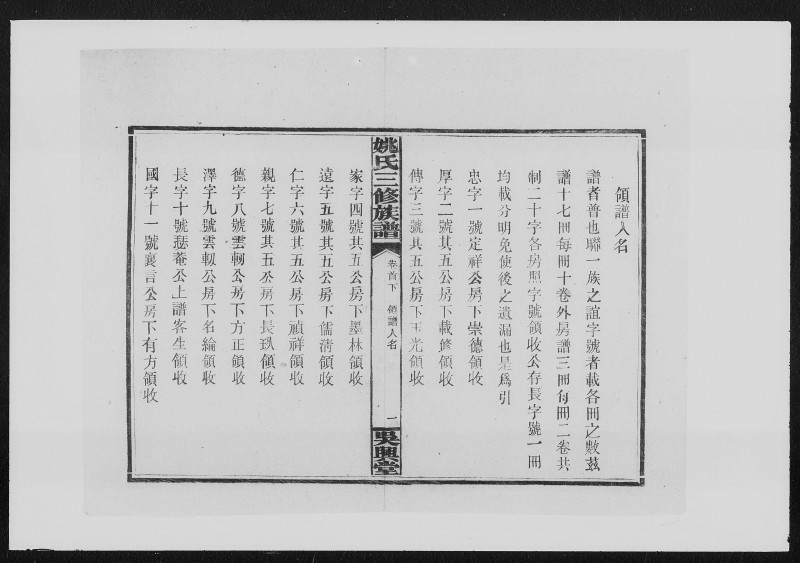 領譜人名
譜者普也聯一族之誼字號者載各冊之數茲
譜十七冊每冊十卷外房譜三冊每冊二卷共
制二十字各房照字號領收公存長字號一冊
均載分明免使後之遺漏也是爲引
忠字一號定祥公房下崇德領收
厚字二號其五公房下載修領收
傳字三號其五公房下玉光領收
姚氏三修族譜
卷首下 領譜人名
一
吳興堂
家字四號其五公房下墨林領收
遠字五號其五公房下儒淸領收
仁字六號其五公房下禎祥領收
親字七號其五公房下長玖領收
德字八號雲軔公房下方正領收
澤字九號雲軔公房下名綸領收
長字十號瑟菴公上譜客生領收
國字十一號襄言公房下有方領收